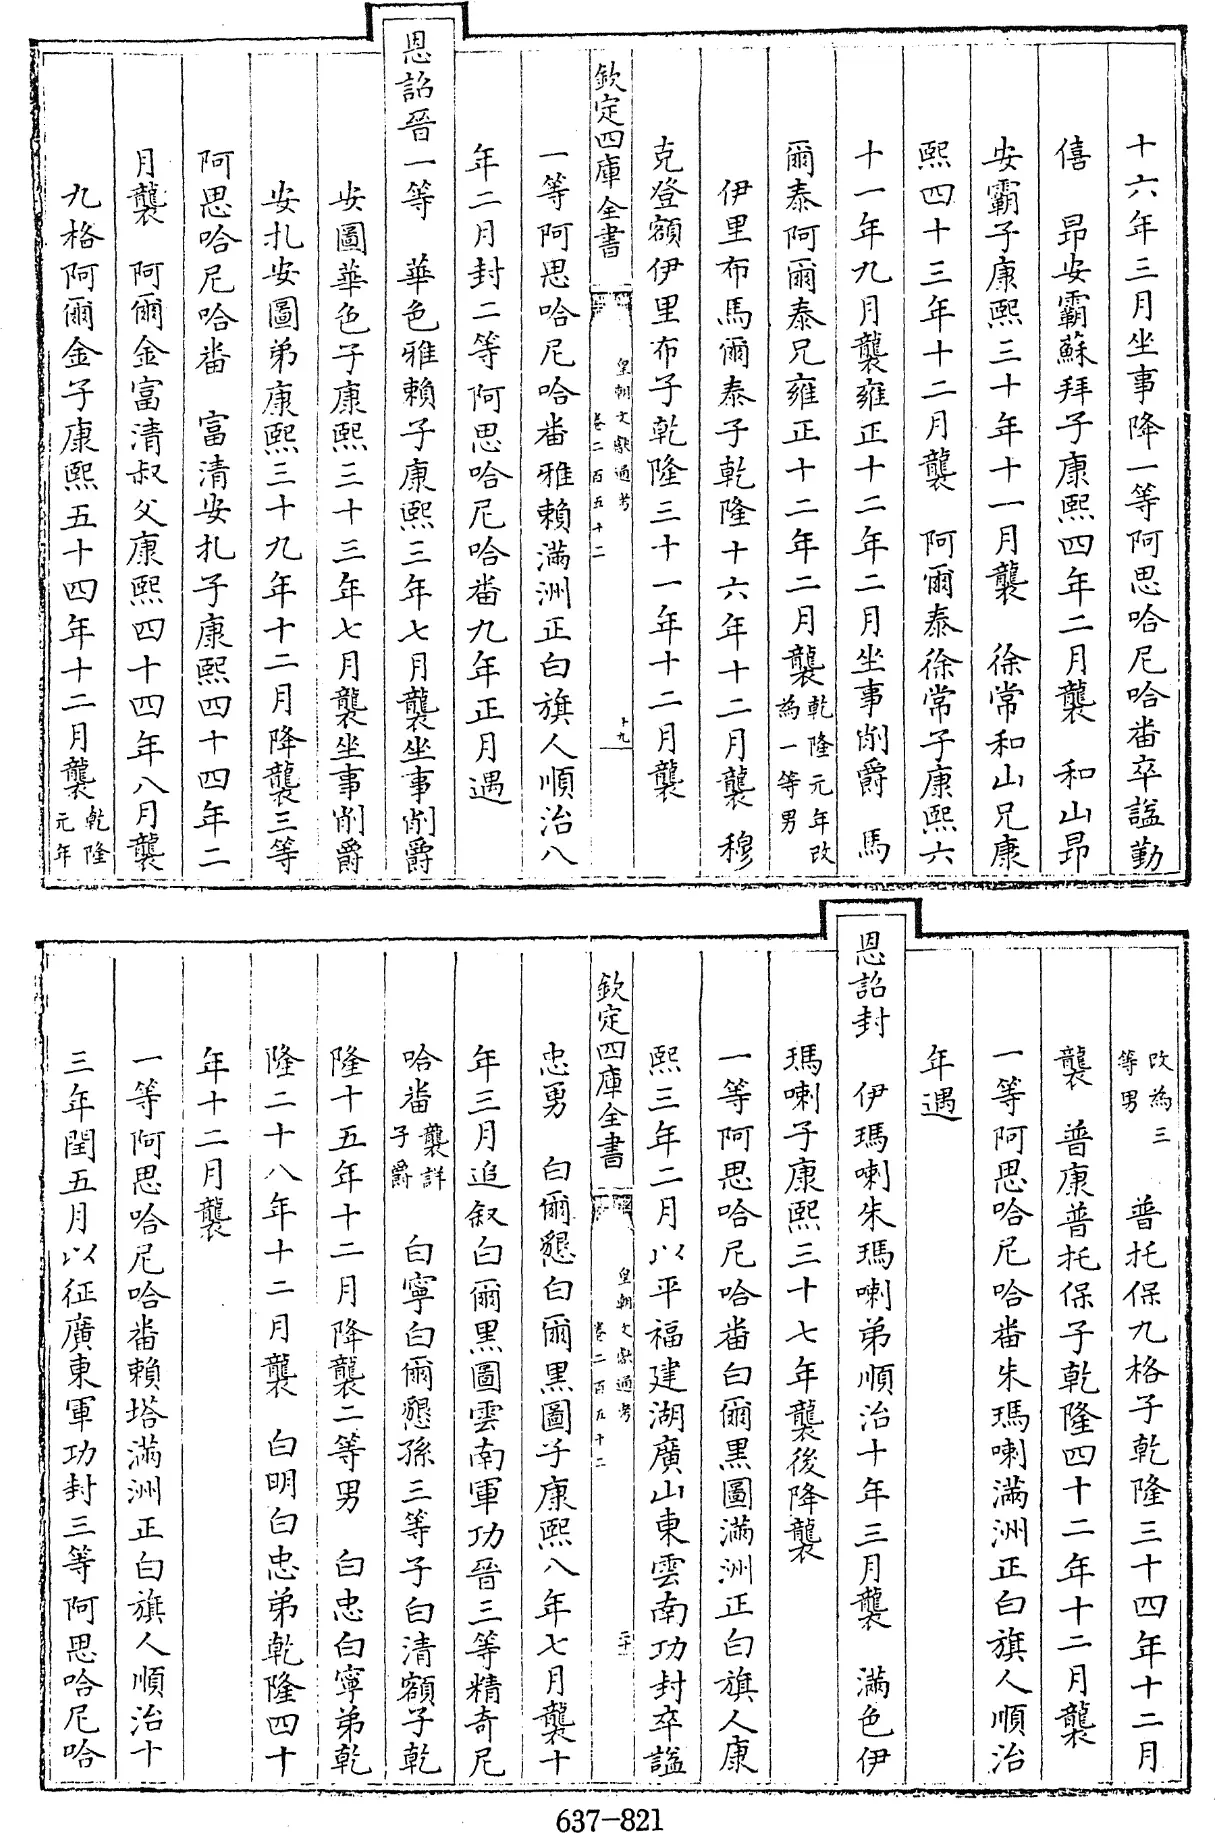 十六年三月坐事降一等阿思哈尼哈番卒諡勤
僖　昂安霸蘇拜子康熙四年二月襲　和山昂
安霸子康熙三十年十一月襲　徐常和山兄康
熙四十三年十二月襲　阿爾泰徐常子康熙六
十一年九月襲雍正十二年二月坐事削爵　馬
爾泰阿爾泰兄雍正十二年二月襲乾隆元年改為一等男
伊里布馬爾泰子乾隆十六年十二月襲　穆
克登額伊里布子乾隆三十一年十二月襲
欽定四庫全書　皇朝文獻通考卷二百五十二　十九
一等阿思哈尼哈番雅賴滿洲正白旗人順治八
年二月封二等阿思哈尼哈番九年正月遇
恩詔晉一等　華色雅賴子康熙三年七月襲坐事削爵
安圖華色子康熙三十三年七月襲坐事削爵
安扎安圖弟康熙三十九年十二月降襲三等
阿思哈尼哈番　富清安扎子康熙四十四年二
月襲　阿爾金富清叔父康熙四十四年八月襲
九格阿爾金子康熙五十四年十二月襲乾隆元年
改為三等男　普托保九格子乾隆三十四年十二月
襲　普康普托保子乾隆四十二年十二月襲
一等阿思哈尼哈番朱瑪喇滿洲正白旗人順治
年遇
恩詔封　伊瑪喇朱瑪喇弟順治十年三月襲　滿色伊
瑪喇子康熙三十七年襲後降襲
一等阿思哈尼哈番白爾黑圖滿洲正白旗人康
熙三年二月以平福建湖廣山東雲南功封卒諡
欽定四庫全書　皇朝文獻通考卷二百五十二　二十
忠勇　白爾懇白爾黑圖子康熙八年七月襲十
年三月追叙白爾黑圖雲南軍功晉三等精奇尼
哈番襲詳子爵　白寧白爾懇孫三等子白清額子乾
隆十五年十二月降襲二等男　白忠白寧弟乾
隆二十八年十二月襲　白明白忠弟乾隆四十
年十二月襲
一等阿思哈尼哈番賴塔滿洲正白旗人順治十
三年閏五月以征廣東軍功封三等阿思哈尼哈
637-821